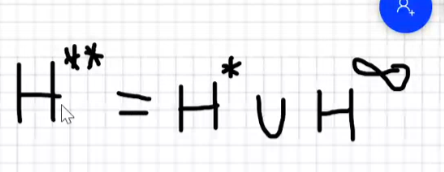 H** = H* ∪ H^∞